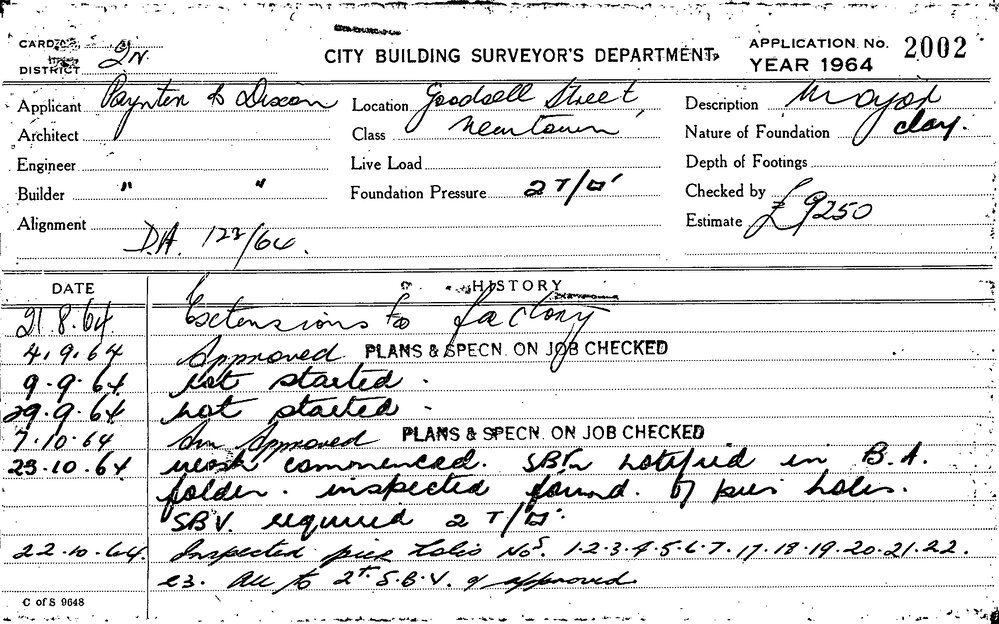 CITY BUILDING SURVEYOR'S DEPARTMENT
APPLICATION No. 2002
YEAR 1964
CARD
DISTRICT 2N.
Applicant Paynter & Dixon
Location Goodsell Street,
Newtown
Description Major
Architect
Class
Nature of Foundation clay.
Engineer
Live Load
Depth of Footings
Builder " "
Foundation Pressure 2 T/□'
Checked by
Alignment
Estimate £9250
D.A. 122/64.
DATE HISTORY
21.8.64 Extensions to factory
4.9.64 Approved PLANS & SPECN. ON JOB CHECKED
9.9.64 not started.
29.9.64 not started.
7.10.64 Approved PLANS & SPECN. ON JOB CHECKED
23.10.64 work commenced. notified in B.A.
folder. inspected found. of pier holes.
SBV. required 2 T/□'.
22.10.64. Inspected pier holes Nos. 1.2.3.4.5.6.7.17.18.19.20.21.22.
23. All to 2T. S.B.V. & approved.
C of S 9648